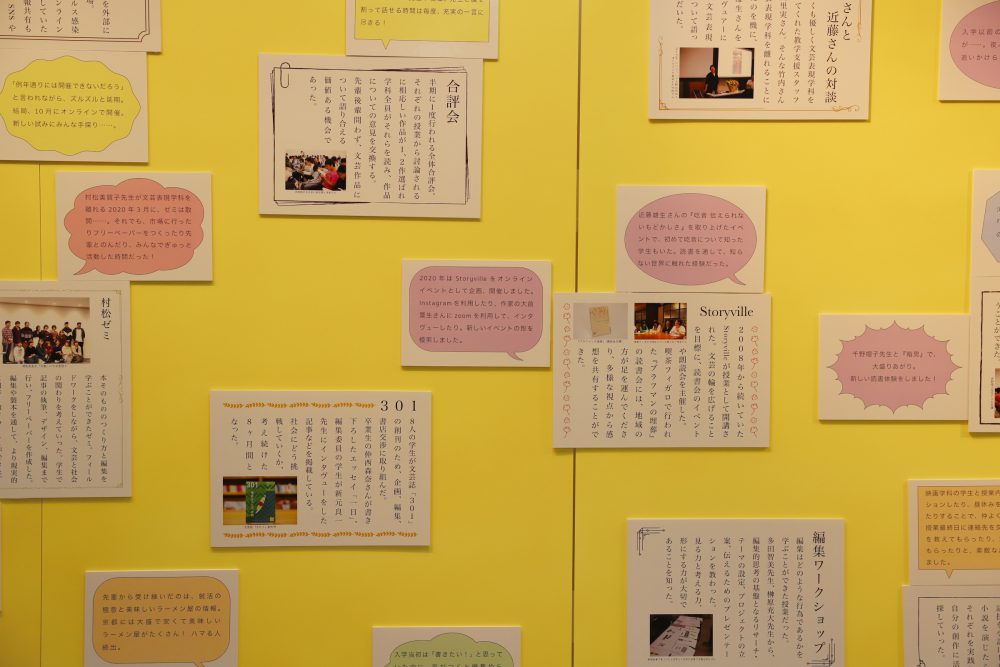 を外部に
ルス感染
ンライン
していた
報共有も
SNSや
割って話せる時間は毎度、充実の一言に
尽きる！
さんと
近藤さんの対談
くも優しく文芸表現学科を
てくれた教学支援スタッフ
里実さん。そんな竹内さん
表現学科を離れることに
のを機に、
ヴュアーに
雄生さんを
文芸表現
ついて語っ
だいた。
入学以前の
が……。夜の
追いかけら
「例年通りには開催できないだろう」
と言われながら、ズルズルと延期。
結局、10月にオンラインで開催。
新しい試みにみんな手探り……。
合評会
半期に1度行われる全体合評会。
それぞれの授業から討論される
に相応しい作品が1、2作選ばれ
学科全員がそれらを読み、作品
についての意見を交換する。
先輩後輩問わず、文芸作品に
ついて語り合える
価値ある機会で
あった。
村松美賀子先生が文芸表現学科を
離れる2020年3月に、ゼミは取
間……。それでも、市場に行った
りフリーペーパーをつくったり先
輩とのんだり、みんなでぎゅっと
活動した時間だった！
近藤雄生さんの『吃音 伝えられな
いもどかしさ』を取り上げたイベ
ントで、初めて吃音について知った
学生もいた。読書を通して、知ら
ない世界に触れた経験だった。
2020年はStoryvilleをオンライン
イベントとして企画、開催しました。
Instagramを利用したり、作家の大前
粟生さんにzoomを利用して、インタ
ヴューしたり。新しいイベントの形を
模索しました。
Storyville
2008年から続いていた
Storyvilleが授業として開講さ
れた。文芸の輪を広げること
を目標に、読書会のイベント
や朗読会を主催した。
喫茶フィガロで行われ
た『ブラフマンの埋葬』
の読書会には、地域の
方が足を運んでくださ
り、多様な視点から感
想を共有することがで
きた。
千野帽子先生と『箱男』で、
大盛りあがり。
新しい読書体験をしました！
村松ゼミ
本そのもののつくり方と編集を
学ぶことができたゼミ。フィール
ドワークをしながら、文芸と社会
の関わりを考えていった。学生で
記事の執筆、デザイン、編集まで
行い、フリーペーパーを作成した。
編集や製本を通して、より現実的
301
8人の学生が文芸誌「301」
の創刊のため、企画、編集、
書店交渉に取り組んだ。
卒業生の仲西森奈さんが書き
下ろしたエッセイ「一日」、
編集委員の学生が新元良一
先生にインタヴューをした
記事などを掲載している。
社会にどう挑
戦していくか、
考え続けた
8ヶ月間と
なった。
映画学科の学生と授業内
ションしたり、昼休みを
たりすることで、仲よく
授業最終日に連絡先を交
を教えてもらったり、
もらったりと、素敵な
ました。
編集ワークショップ
編集はどのような行為であるかを
学ぶことができた授業だった。
多田智美先生、榊原充大先生から、
編集的思考の基盤となるリサーチ、
テーマの設定、プロジェクトの立
案、伝えるためのプレゼンテー
ションを教わった。
見る力と考える力、
形にする力が大切で
あることを知った。
先輩から受け継いだのは、就活の
極意と美味しいラーメン屋の情報。
京都には大盛で安くて美味しい
ラーメン屋がたくさん！ ハマる人
続出。
入学当初は「書きたい！」と思って
小説を演じた
それぞれを実践
自分の創作に
探していった。